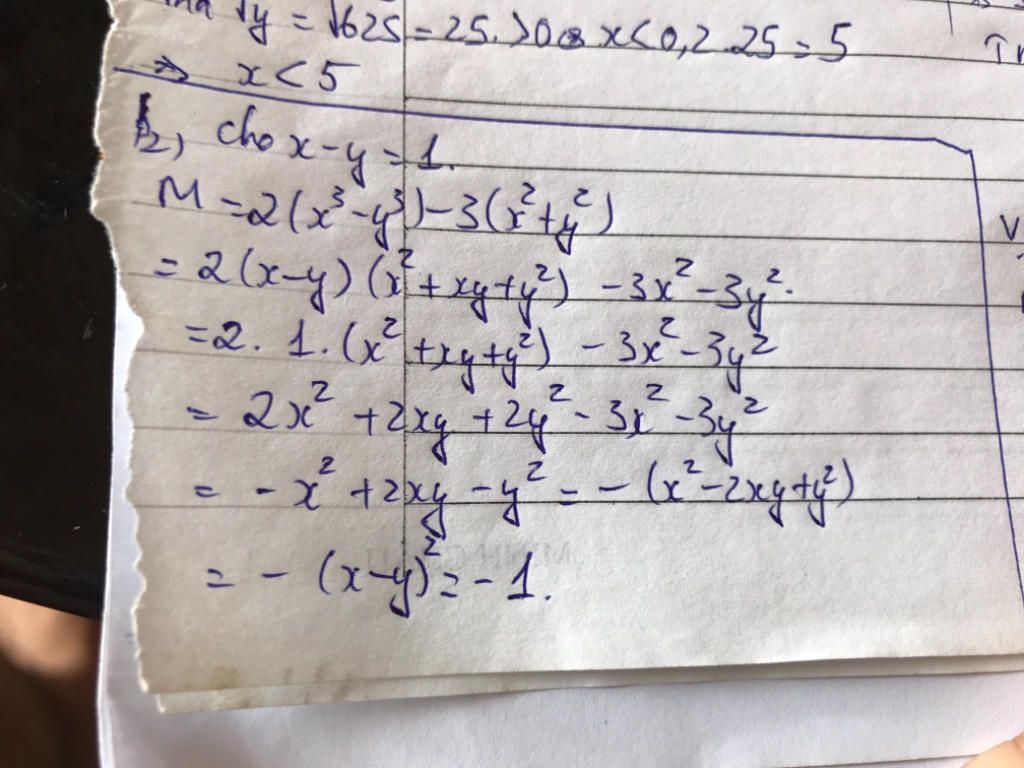 √y = √625 = 25. >0 x<0,2.25 = 5
=> x < 5
2, cho x-y = 1.
M = 2(x³-y³)-3(x²+y²)
= 2(x-y)(x²+xy+y²) -3x²-3y².
=2. 1.(x²+xy+y²) -3x²-3y²
= 2x² +2xy +2y² -3x² -3y²
= -x² +2xy -y² = -(x²-2xy+y²)
= -(x-y)² = -1.